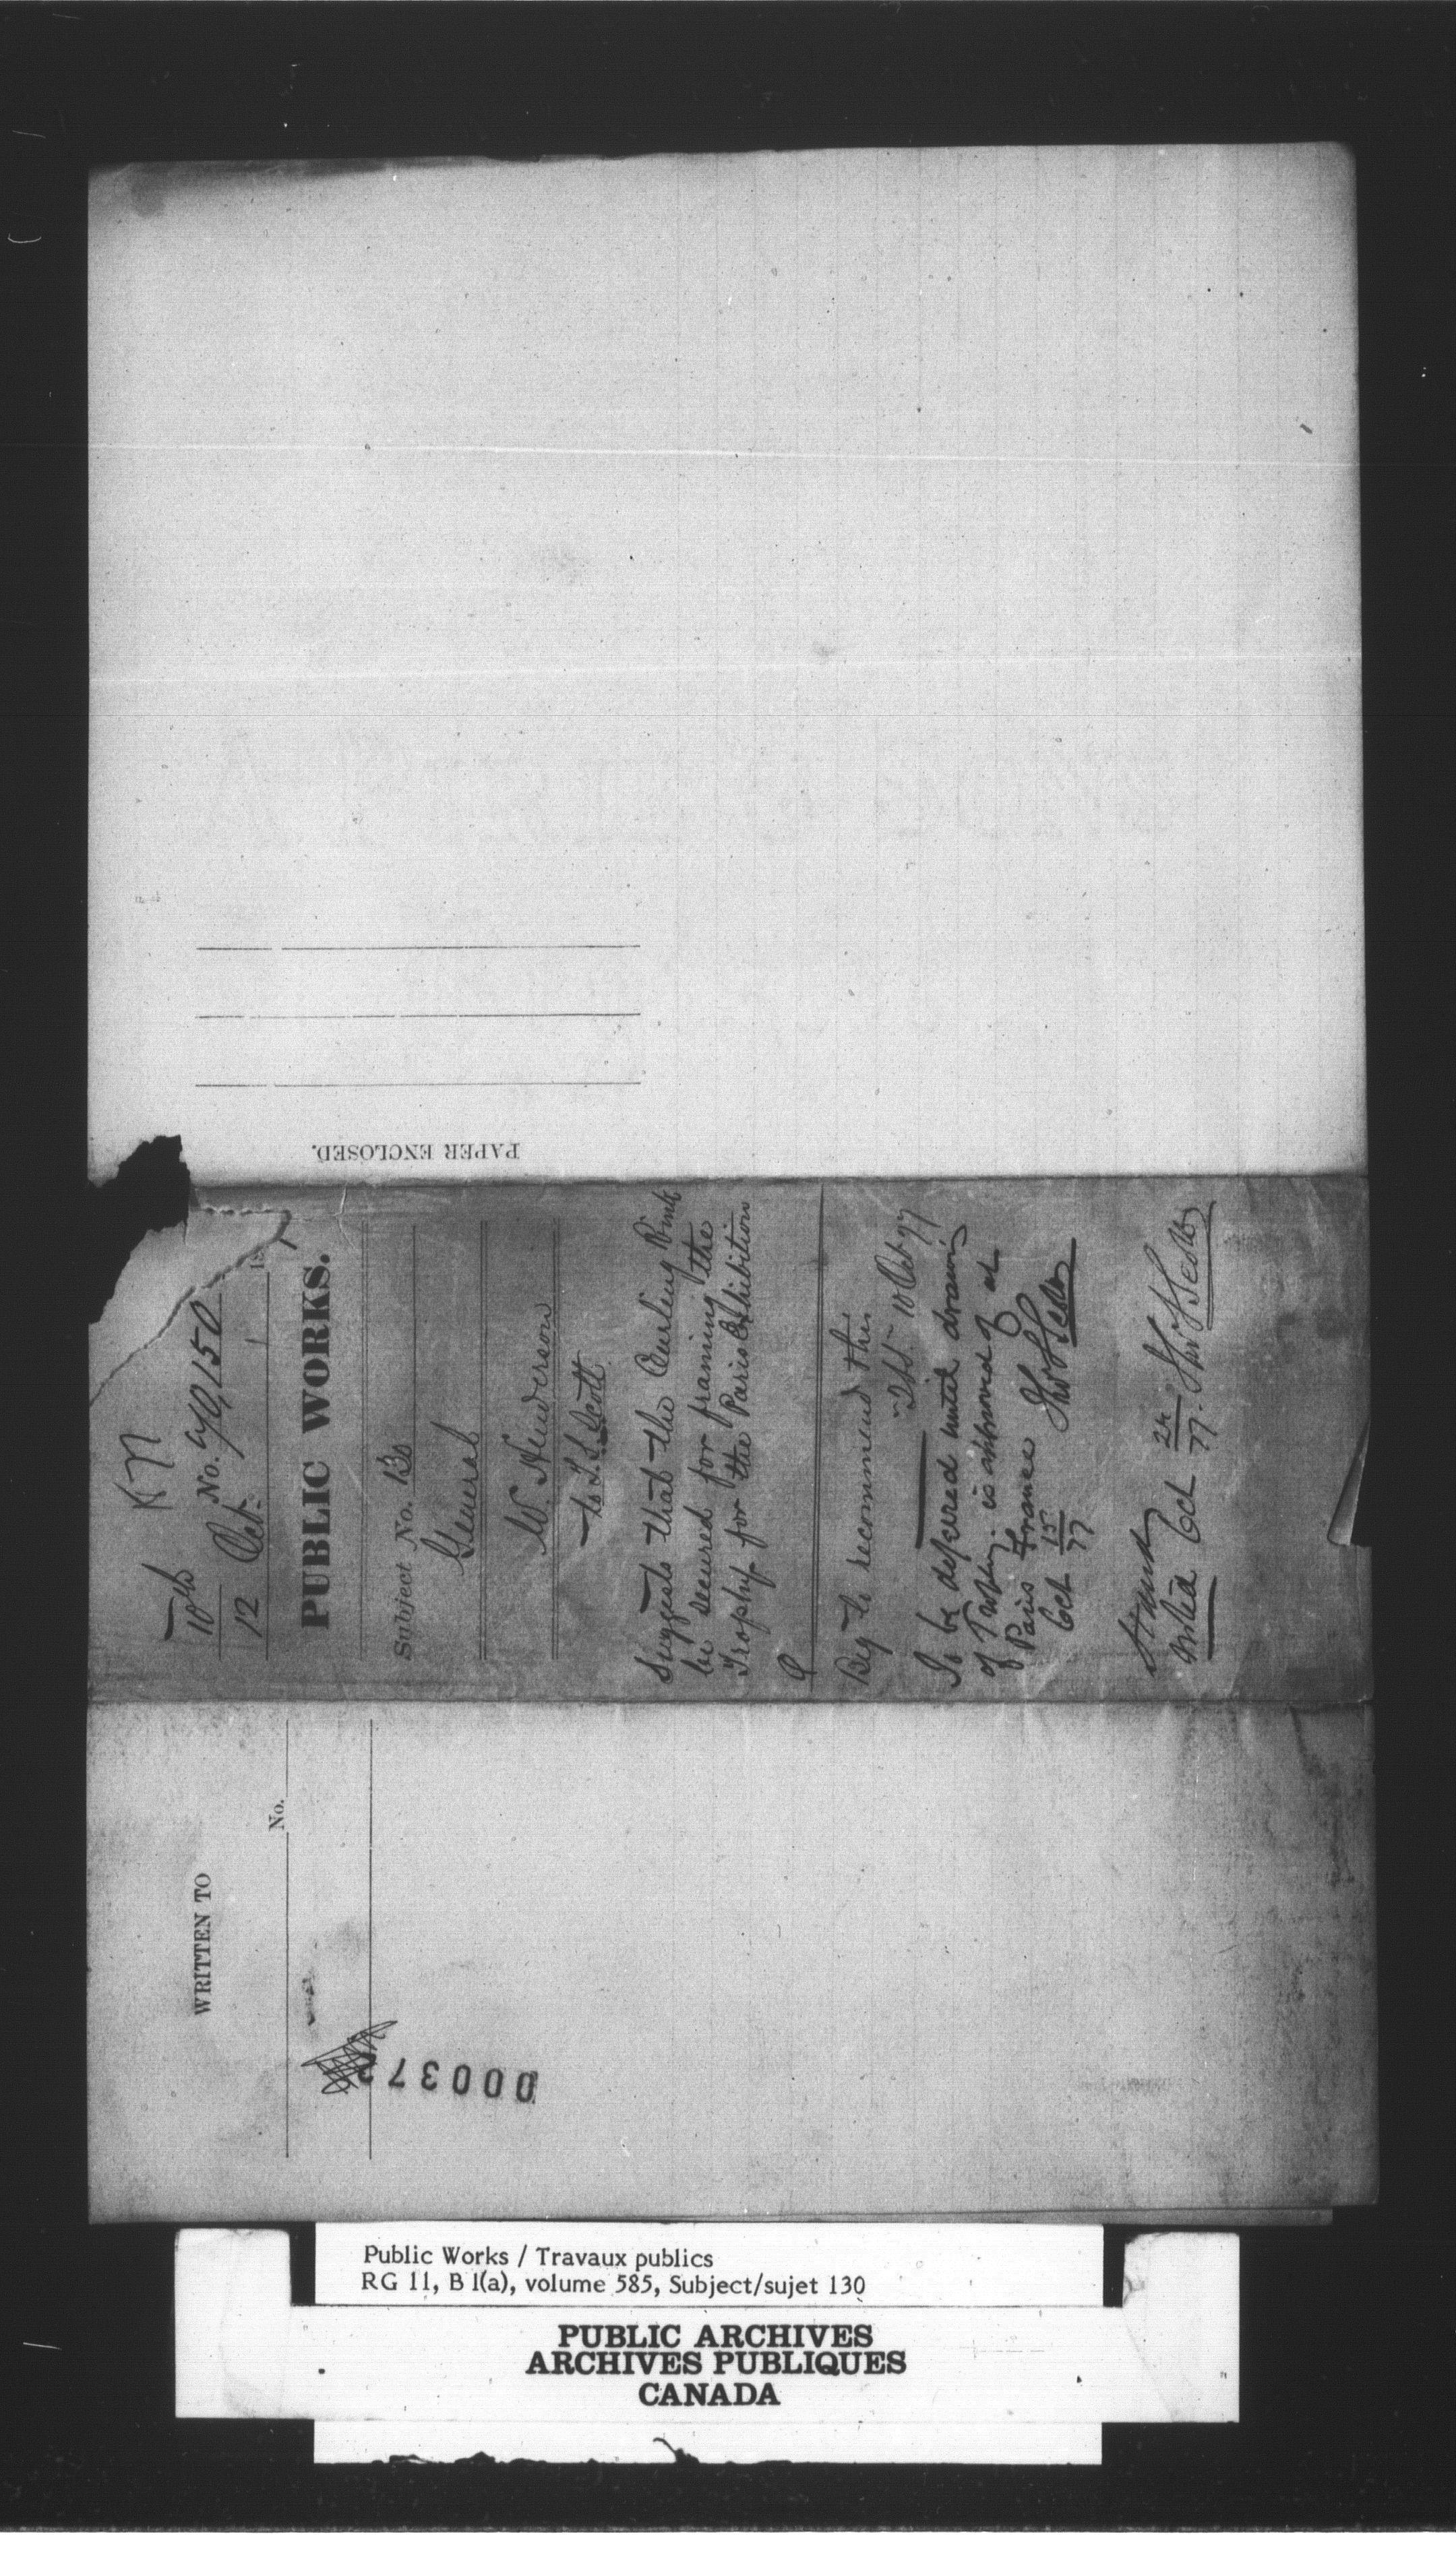 PAPER ENCLOSED.
10th
12 Oct. No. 70,150 18
PUBLIC WORKS.
Subject No. 130
General
W. Henderson
to T.S. Scott
Suggests that the Curling Rink
be secured for framing the
Trophy for the Paris Exhibition
Beg to recommend this
10 Oct 77
To be deferred until drawing
of Trophy is approved of at
Paris France
Oct 15/77
Oct 24/77.
WRITTEN TO
No.
000372
Public Works / Travaux publics
RG 11, B 1(a), volume 585, Subject/sujet 130
PUBLIC ARCHIVES
ARCHIVES PUBLIQUES
CANADA